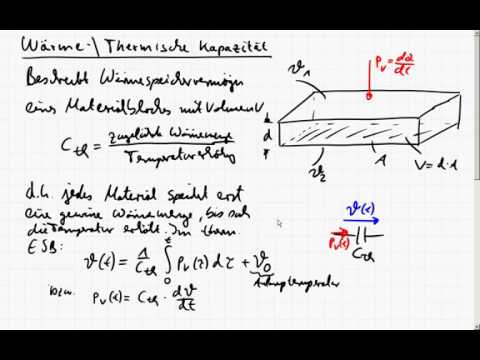 Wärme-/Thermische Kapazität
Beschreibt Wärmespeichervermögen
eines Materialblockes mit Volumen V
C_th = zugeführte Wärmemenge / Temperaturerhöhg
d.h. jedes Material speichert erst
eine gewisse Wärmemenge, bis sich
die Temperatur erhöht. Im therm.
ESB:
ϑ(t) = 1/C_th ∫₀ᵗ P_v(τ) dτ + ϑ₀
Anfangstemperatur
bzw. P_v(t) = C_th · dϑ/dt
ϑ₁
P_v = dQ/dt
d
ϑ₂
A
V = d·A
ϑ(t)
P_v(t)
C_th